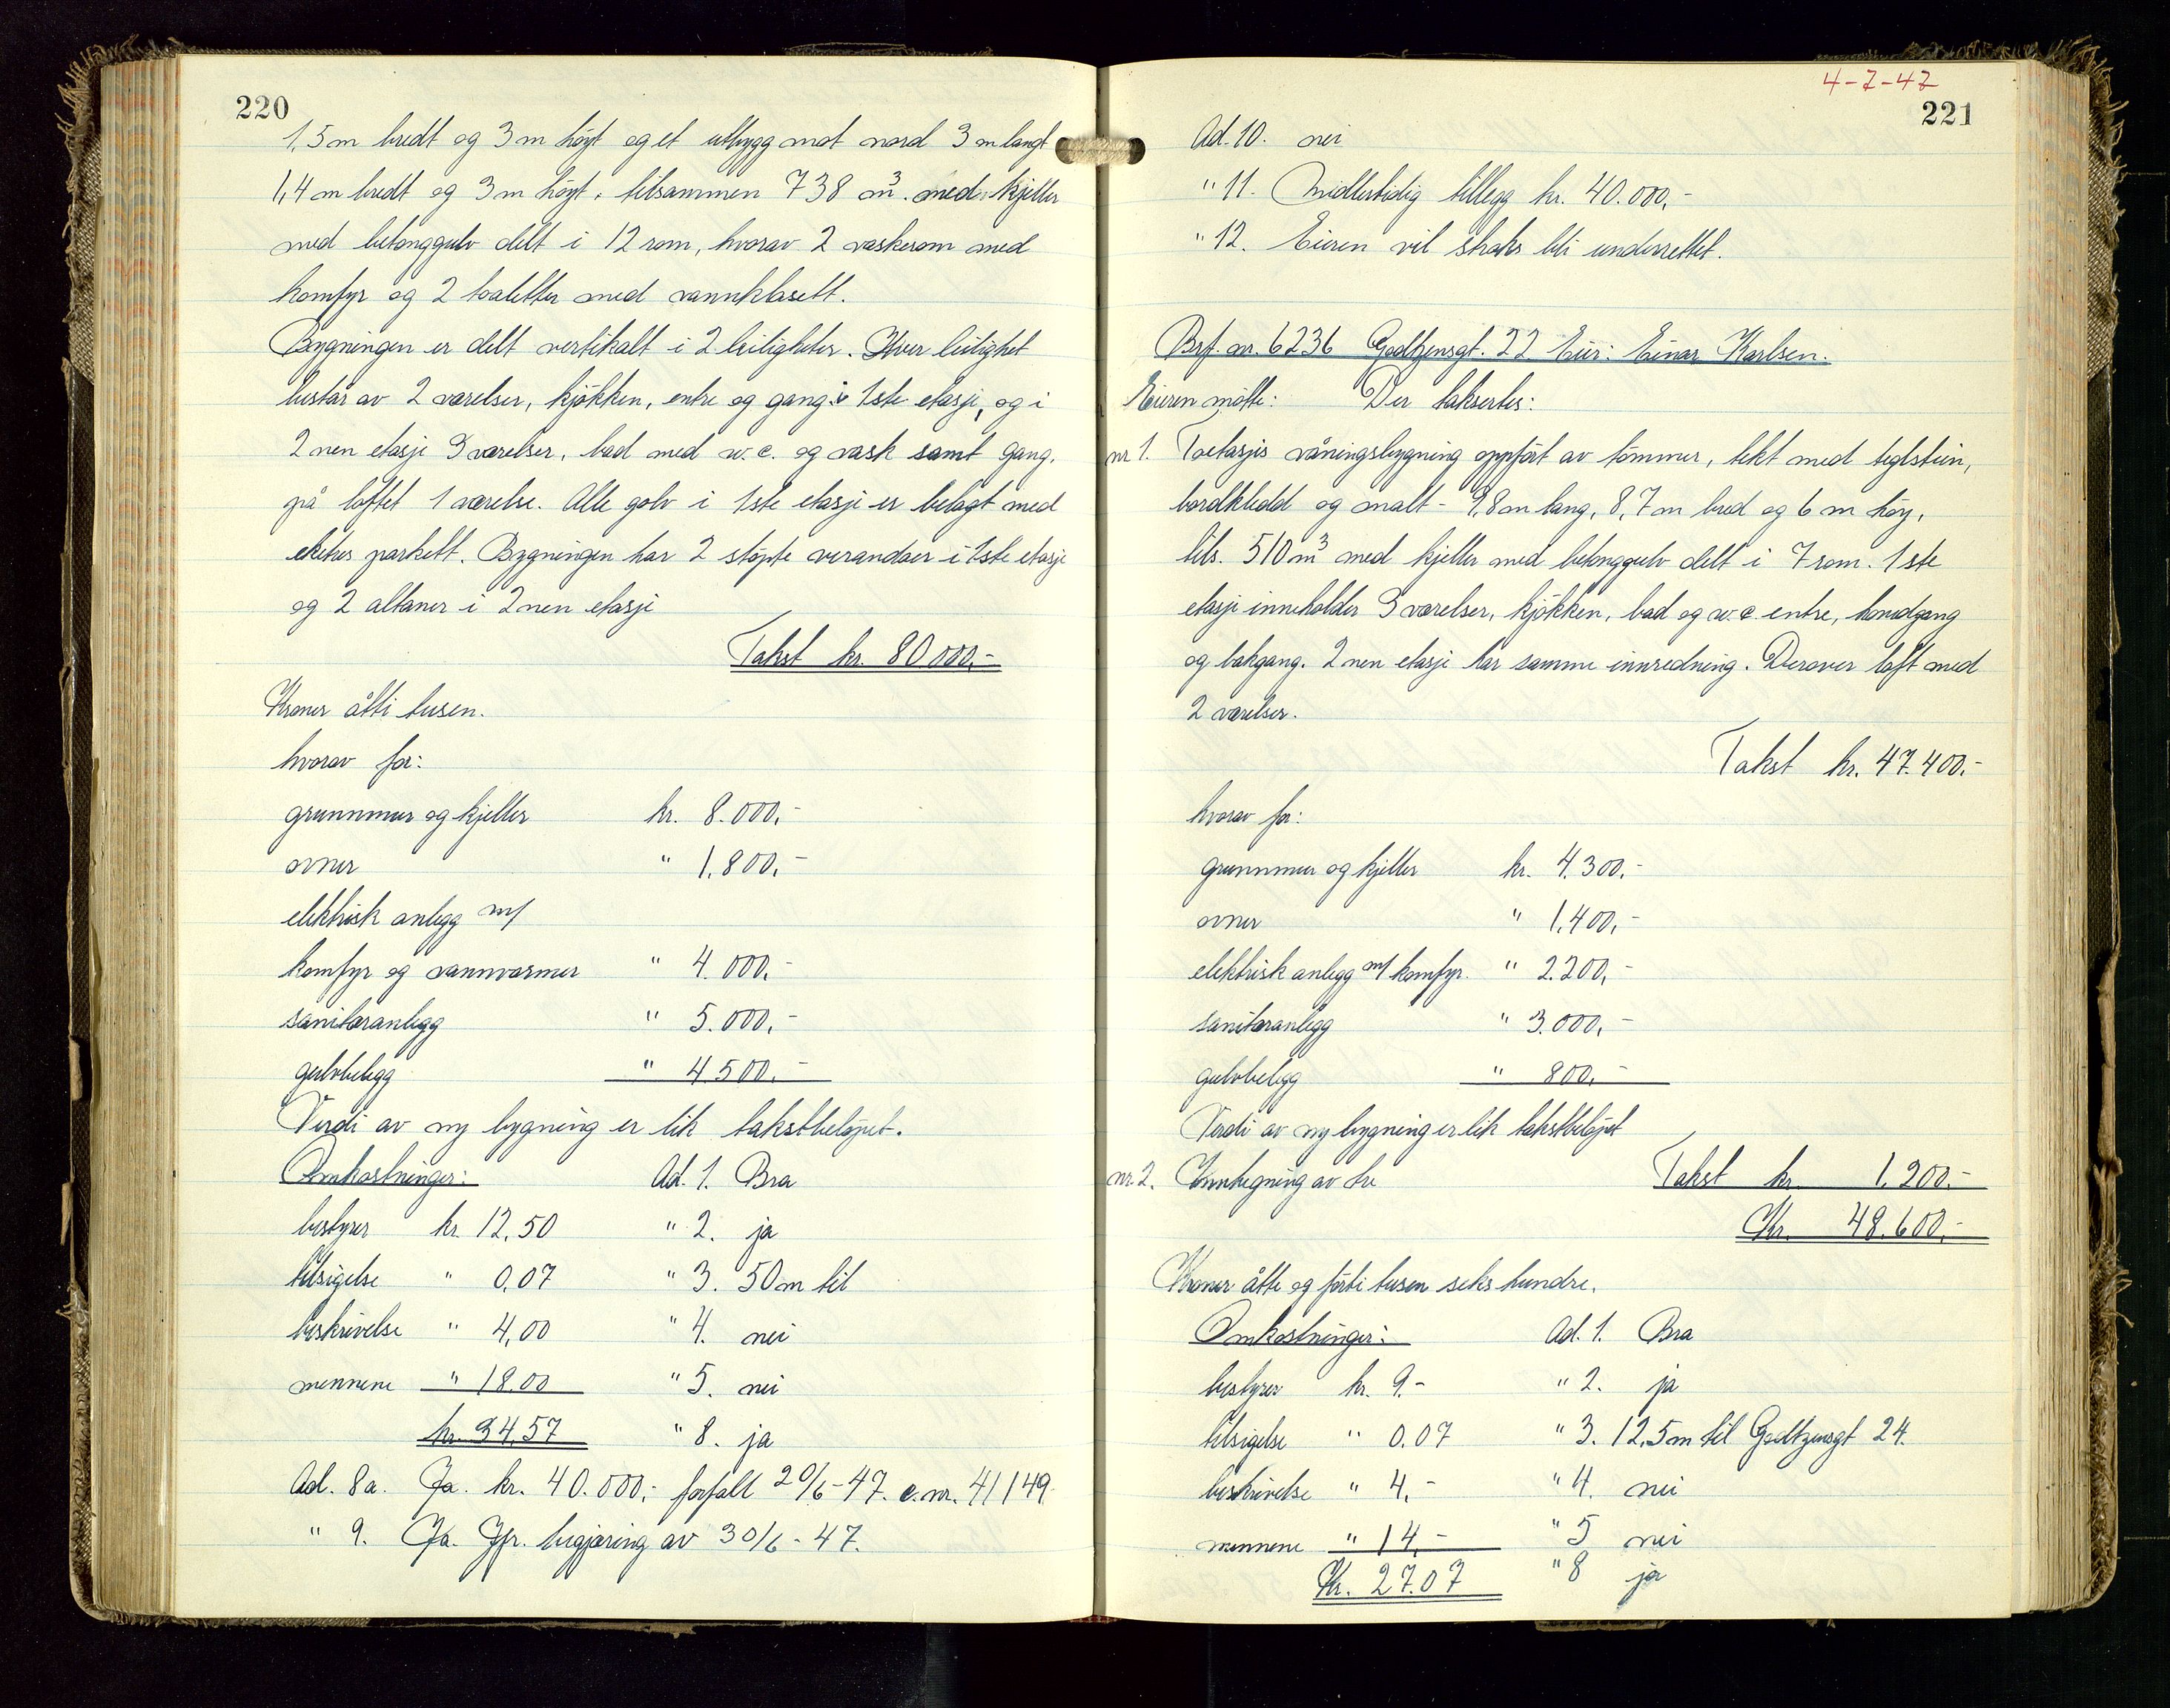 220
1,5 m bredt og 3 m höyt og et utbygg mot nord 3 m langt
1,4 m bredt og 3 m höyt, tilsammen 738 m³. med kjeller
med betonggulv delt i 12 rom, hvorav 2 vaskerom med
komfyr og 2 toaletter med vannklosett.
Bygningen er delt vertikalt i 2 leiligheter. Hver leilighet
består av 2 værelser, kjökken, entre og gang i 1ste etasje, og i
2nen etasje 3 værelser, bad med w.c. og vask samt gang,
på loftet 1 værelse. Alle golv i 1ste etasje er belagt med
ekekes parkett. Bygningen har 2 støpte verandaer i 1ste etasje
og 2 altaner i 2nen etasje
Takst kr. 80000,-
Kroner åtti tusen.
hvorav for:
grunnmur og kjeller kr. 8.000,-
ovner " 1.800,-
elektrisk anlegg m/
komfyr og vannvarmer " 4.000,-
sanitæranlegg " 5.000,-
gulvbelegg " 4500,-
Verdi av ny bygning er lik takstbelöpet.
Omkostninger: Ad. 1. Bra
bestyrer kr. 12,50 " 2. ja
tilsigelse " 0,07 " 3. 50 m til
beskrivelse " 4,00 " 4. nei
mennene " 18.00 " 5. nei
kr. 34,57 " 8. ja
Ad. 8a. Ja. kr. 40.000,- forfalt 20/6-47. c.nr. 41149.
" 9. Ja. Jfr. begjæring av 30/6-47.
4-7-47
221
Ad. 10. nei
" 11. Midlertidig tillegg kr. 40.000,-
" 12. Eieren vil straks bli underrettet.
Brf. nr. 6236 Godtzensgt. 22 Eier: Einar Karlsen.
Eieren møtte: Der taksertes:
nr 1. Toetasjes våningsbygning oppfört av tömmer, tekt med teglstein,
bordkledd og malt - 9,8 m lang, 8,7 m bred og 6 m höy,
tils. 510 m³ med kjeller med betonggulv delt i 7 rom. 1ste
etasje inneholder 3 værelser, kjökken, bad og w.c. entre, hovedgang
og bakgang. 2nen etasje har samme innredning. Derover loft med
2 værelser.
Takst kr. 47.400,-
hvorav for:
grunnmur og kjeller kr. 4.300,-
ovner " 1.400,-
elektrisk anlegg m/ komfyr. " 2.200,-
sanitæranlegg " 3.000,-
gulvbelegg " 800,-
Verdi av ny bygning er lik takstbelöpet
nr. 2. Inntegning av tre Takst kr. 1.200,-
Kr. 48.600,-
Kroner åtte og förti tusen seks hundre.
Omkostninger: Ad. 1. Bra
bestyrer kr. 9.- " 2. ja
tilsigelse " 0.07 " 3. 12,5 m til Godtzensgt 24.
beskrivelse " 4,- " 4. nei
mennene " 14,- " 5 nei
Kr. 27.07 " 8 ja